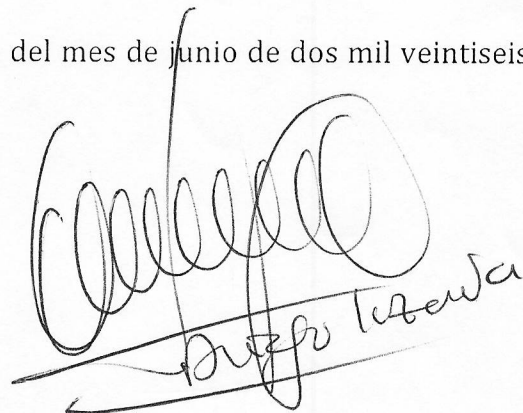 del mes de junio de dos mil veintiseis
Diego